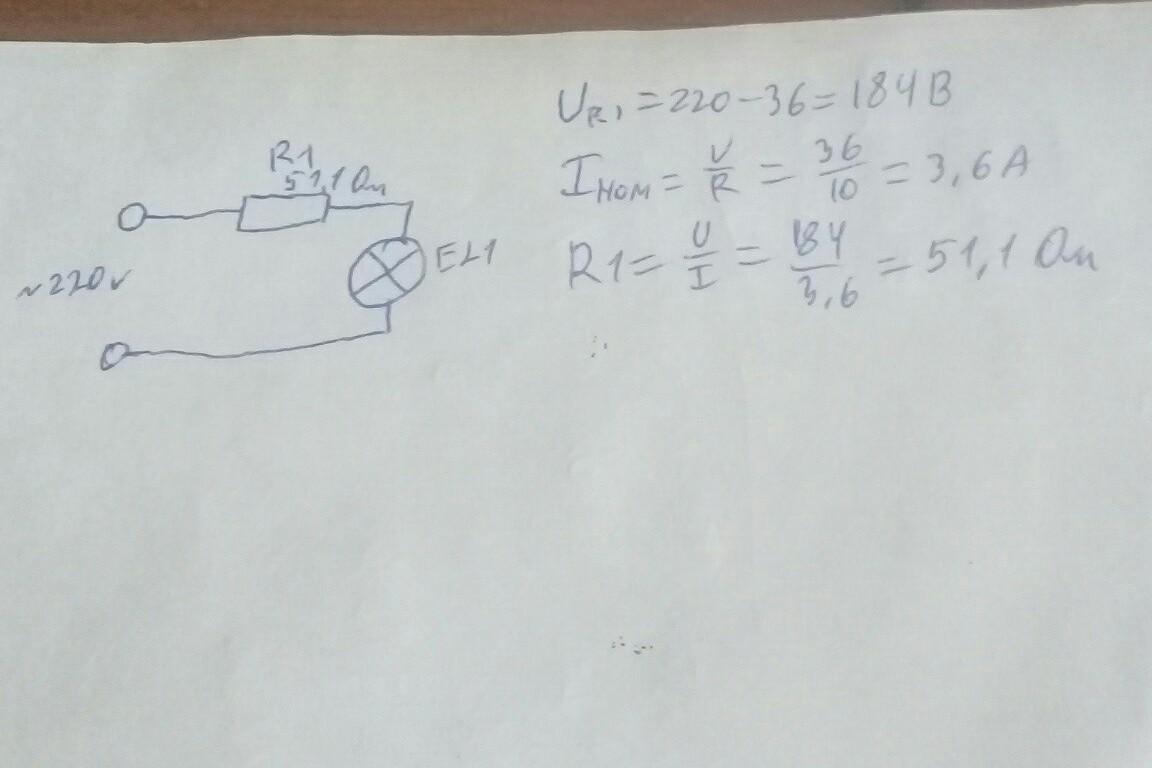 R1
51,1 Ом
~220v
EL1
U_R1 = 220 - 36 = 184 В
I_ном = U/R = 36/10 = 3,6 А
R1 = U/I = 184/3,6 = 51,1 Ом